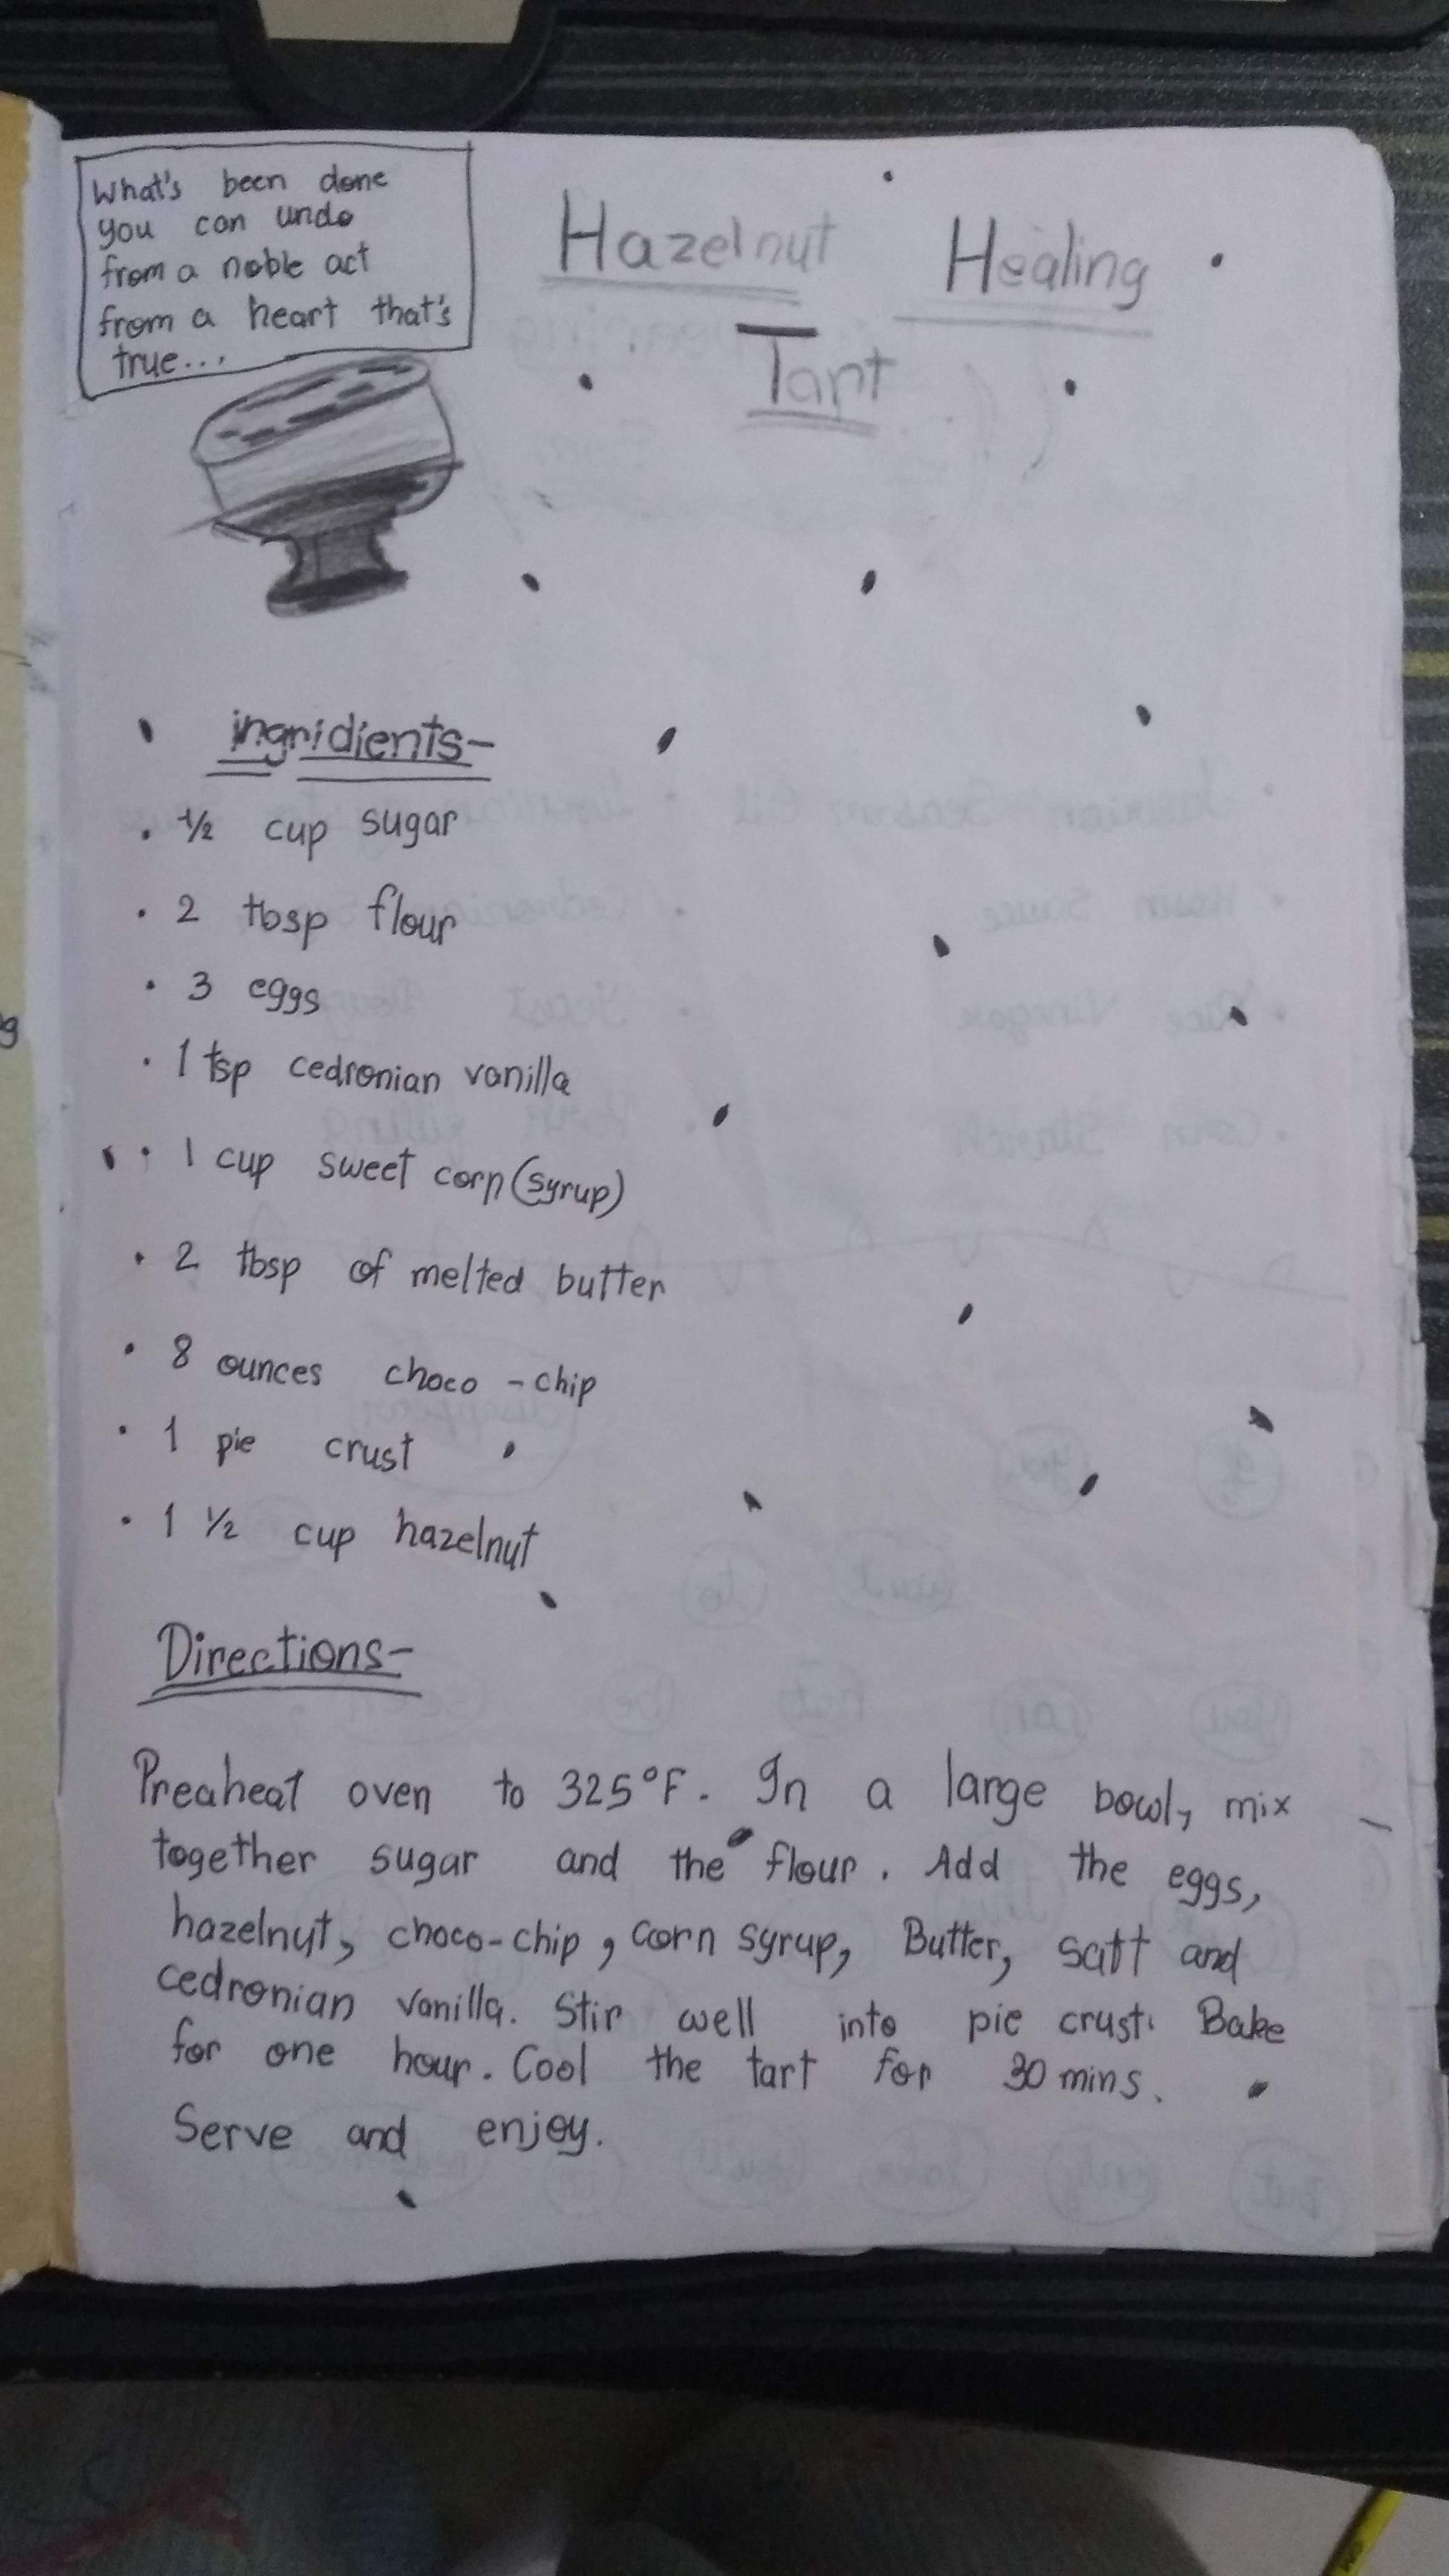 What's been done
you can undo
from a noble act
from a heart that's
true...
Hazelnut Healing
Tart
ingridients-
. 1/2 cup sugar
. 2 tbsp flour
. 3 eggs
. 1 tsp cedronian vanilla
. 1 cup sweet corn (syrup)
. 2 tbsp of melted butter
. 8 ounces choco - chip
. 1 pie crust
. 1 1/2 cup hazelnut
Directions-
Preaheat oven to 325°F. In a large bowl, mix
together sugar and the flour. Add the eggs,
hazelnut, choco-chip, corn syrup, Butter, salt and
cedronian vanilla. Stir well into pie crust. Bake
for one hour. Cool the tart for 30 mins.
Serve and enjoy.